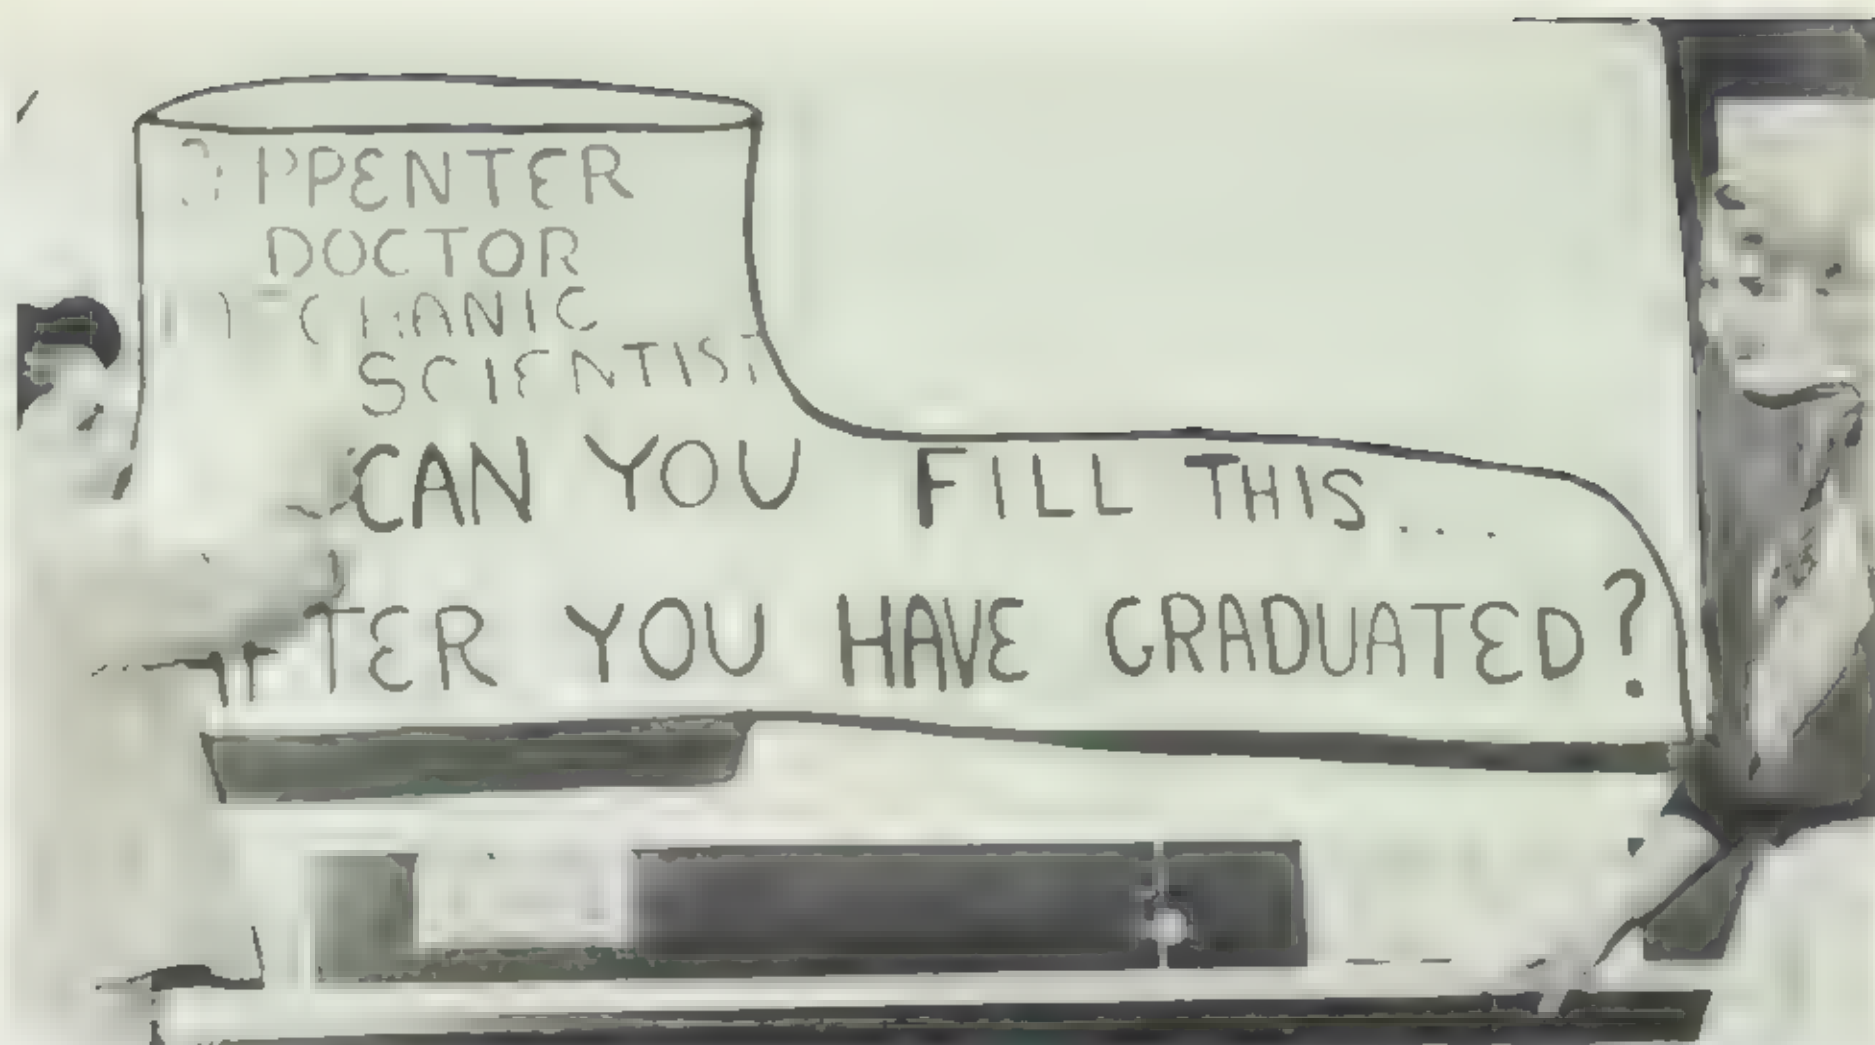 PPENTER
DOCTOR
HANIC
SCIENTIST
CAN YOU FILL THIS...
TER YOU HAVE GRADUATED?